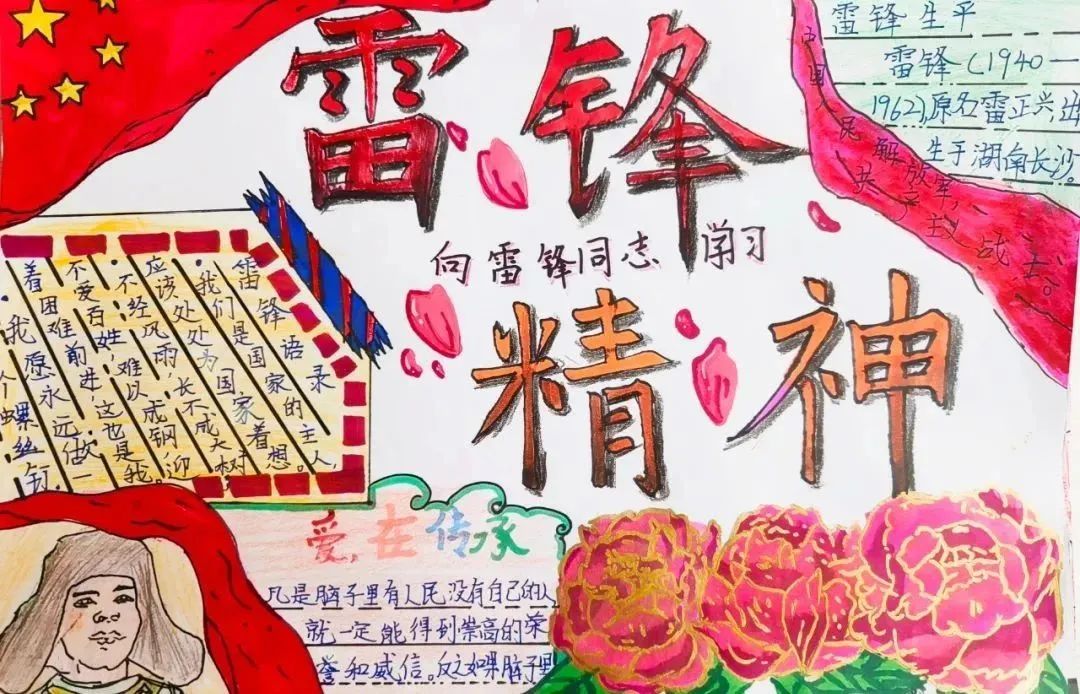 雷锋
向雷锋同志学习
精神
雷锋生平
雷锋(1940—
1962),原名雷正兴出
生于湖南长沙。
中国人民解放军,
共产主义战士。
雷锋语录
·我们是国家的主人,
应该处处为国家着想。
·不经风雨,长不成大树
不爱百姓,难以成钢,迎
着困难前进,这也是我。
·我愿永远做一
个螺丝钉。
爱在传承
凡是脑子里有人民没有自己的人
就一定能得到崇高的荣
誉和威信。反之如果脑子里